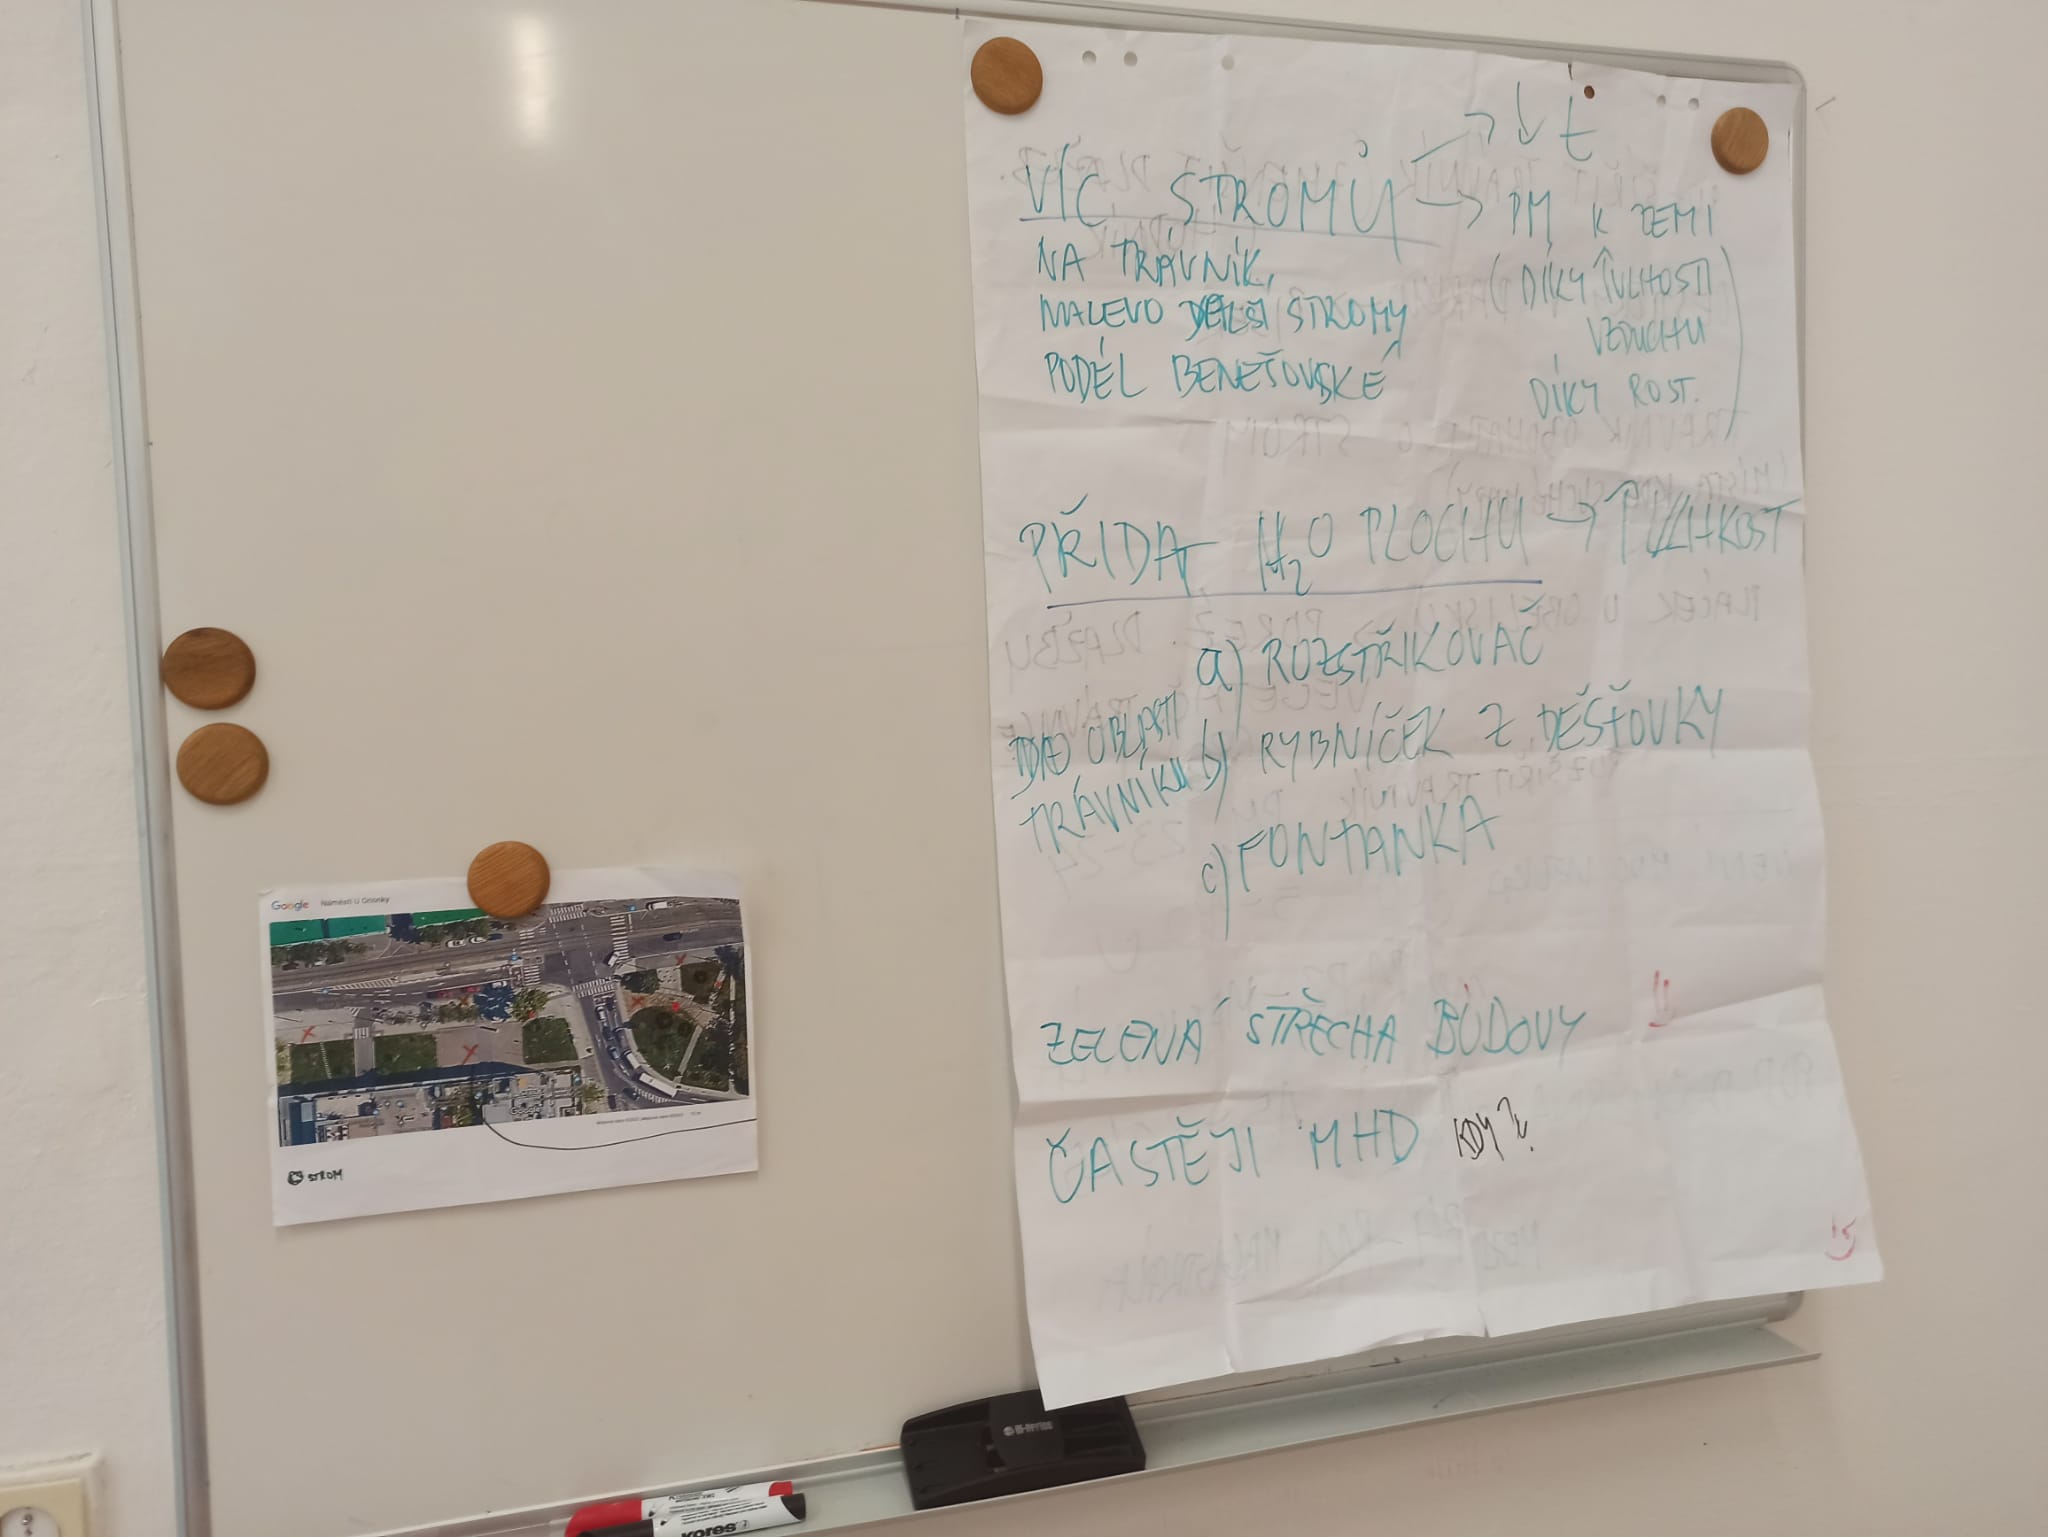 → ↓ t
VÍC STROMŮ → PM K ZEMI
NA TRÁVNÍK,
NALEVO DĚLŠÍ STROMY
PODÉL BENEŠOVSKÉ
(DÍKY ↑VLHOSTI
VZDUCHU
DÍKY ROST.)
PŘIDAT H₂O PLOCHU → ↑VLHKOST
a) ROZSTŘIKOVAČ
DO OBLASTI
TRÁVNÍKU
b) RYBNÍČEK Z DĚŠŤOVKY
c) FONTANKA
ZELENÁ STŘECHA BUDOVY
ČASTĚJI MHD KDY?
Google Náměstí U Orionky
STROM
Hi-Series
Kores